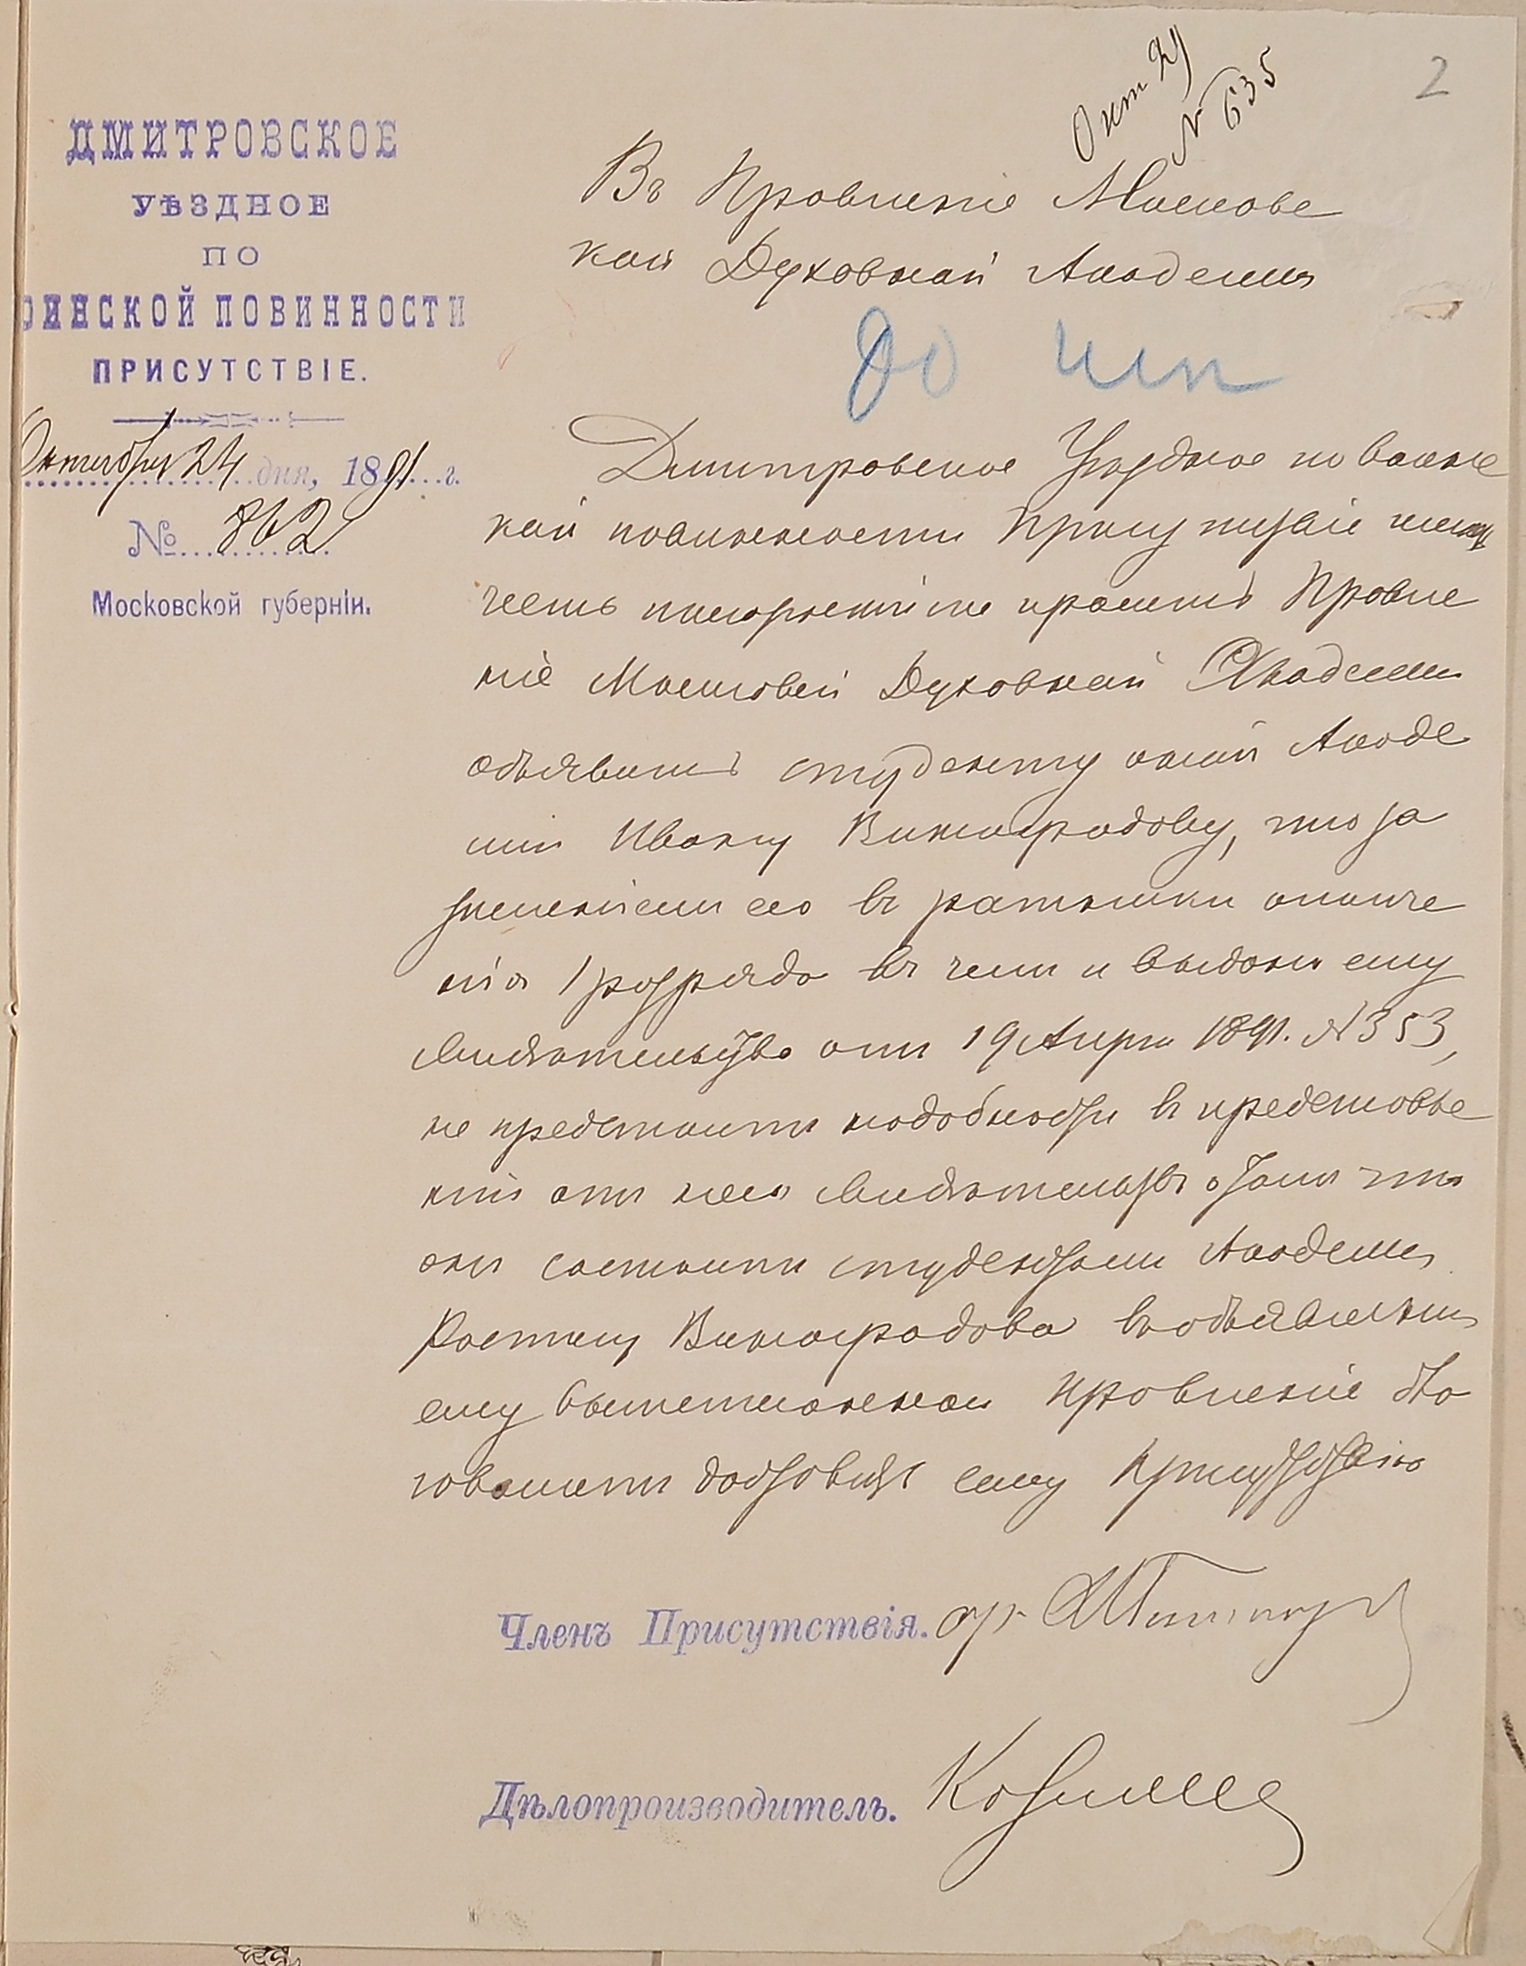 2
Окт 29
№ 635
ДМИТРОВСКОЕ
УѢЗДНОЕ
ПО
ОИНСКОЙ ПОВИННОСТИ
ПРИСУТСТВІЕ.
Октября 24 дня, 1891 г.
№ 862
Московской губерніи.
Въ Правленіе Московс
кой Духовной Академіи
Дмитровское Уѣздное по воинс
кой повинности Присутствіе имѣетъ
честь покорнѣйше просить Правле
ніе Московской Духовной Академіи
объявить студенту оной Акаде
міи Ивану Виноградову, что за
численіемъ его въ ратники ополче
нія 1 разряда въ чемъ и выдано ему
свидѣтельство отъ 19 Апрѣ 1891. № 353,
не предстоитъ надобности въ представле
ніи отъ него свидѣтельствъ о томъ что
онъ состоитъ студентомъ Академіи
Росписку Виноградова въ объявленіи
ему вышеписаннаго Правленіе бла
говолитъ доставить сему Присутствію
Членъ Присутствія.
Дѣлопроизводитель.